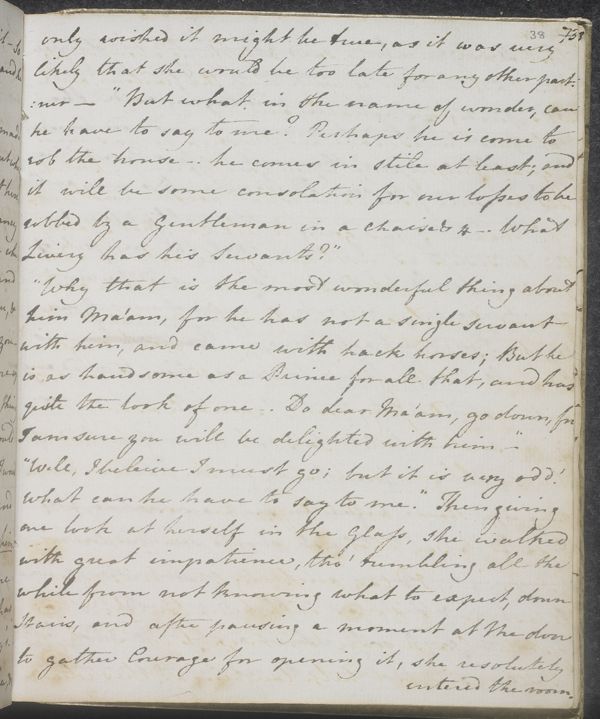 38 73
only wished it might be true, as it was very
likely that she would be too late for any other part:
:ner — "But what in the name of wonder, can
he have to say to me? Perhaps he is come to
rob the house -. he comes in stile at least; and
it will be some consolation for our losses to be
robbed by a Gentleman in a chaise & 4 -. What
Livery has his Servants?"
"Why that is the most wonderful thing about
him Ma'am, for he has not a single servant
with him, and came with hack horses; But he
is as handsome as a Prince for all that, and has
quite the look of one. Do dear Ma'am, go down, for
I am sure you will be delighted with him —"
"Well, I beleive I must go; but it is very odd!
What can he have to say to me." Then giving
one look at herself in the Glass, she walked
with great impatience, tho' trembling all the
while from not knowing what to expect, down
Stairs, and after pausing a moment at the door
to gather Courage for opening it, she resolutely
entered the room.